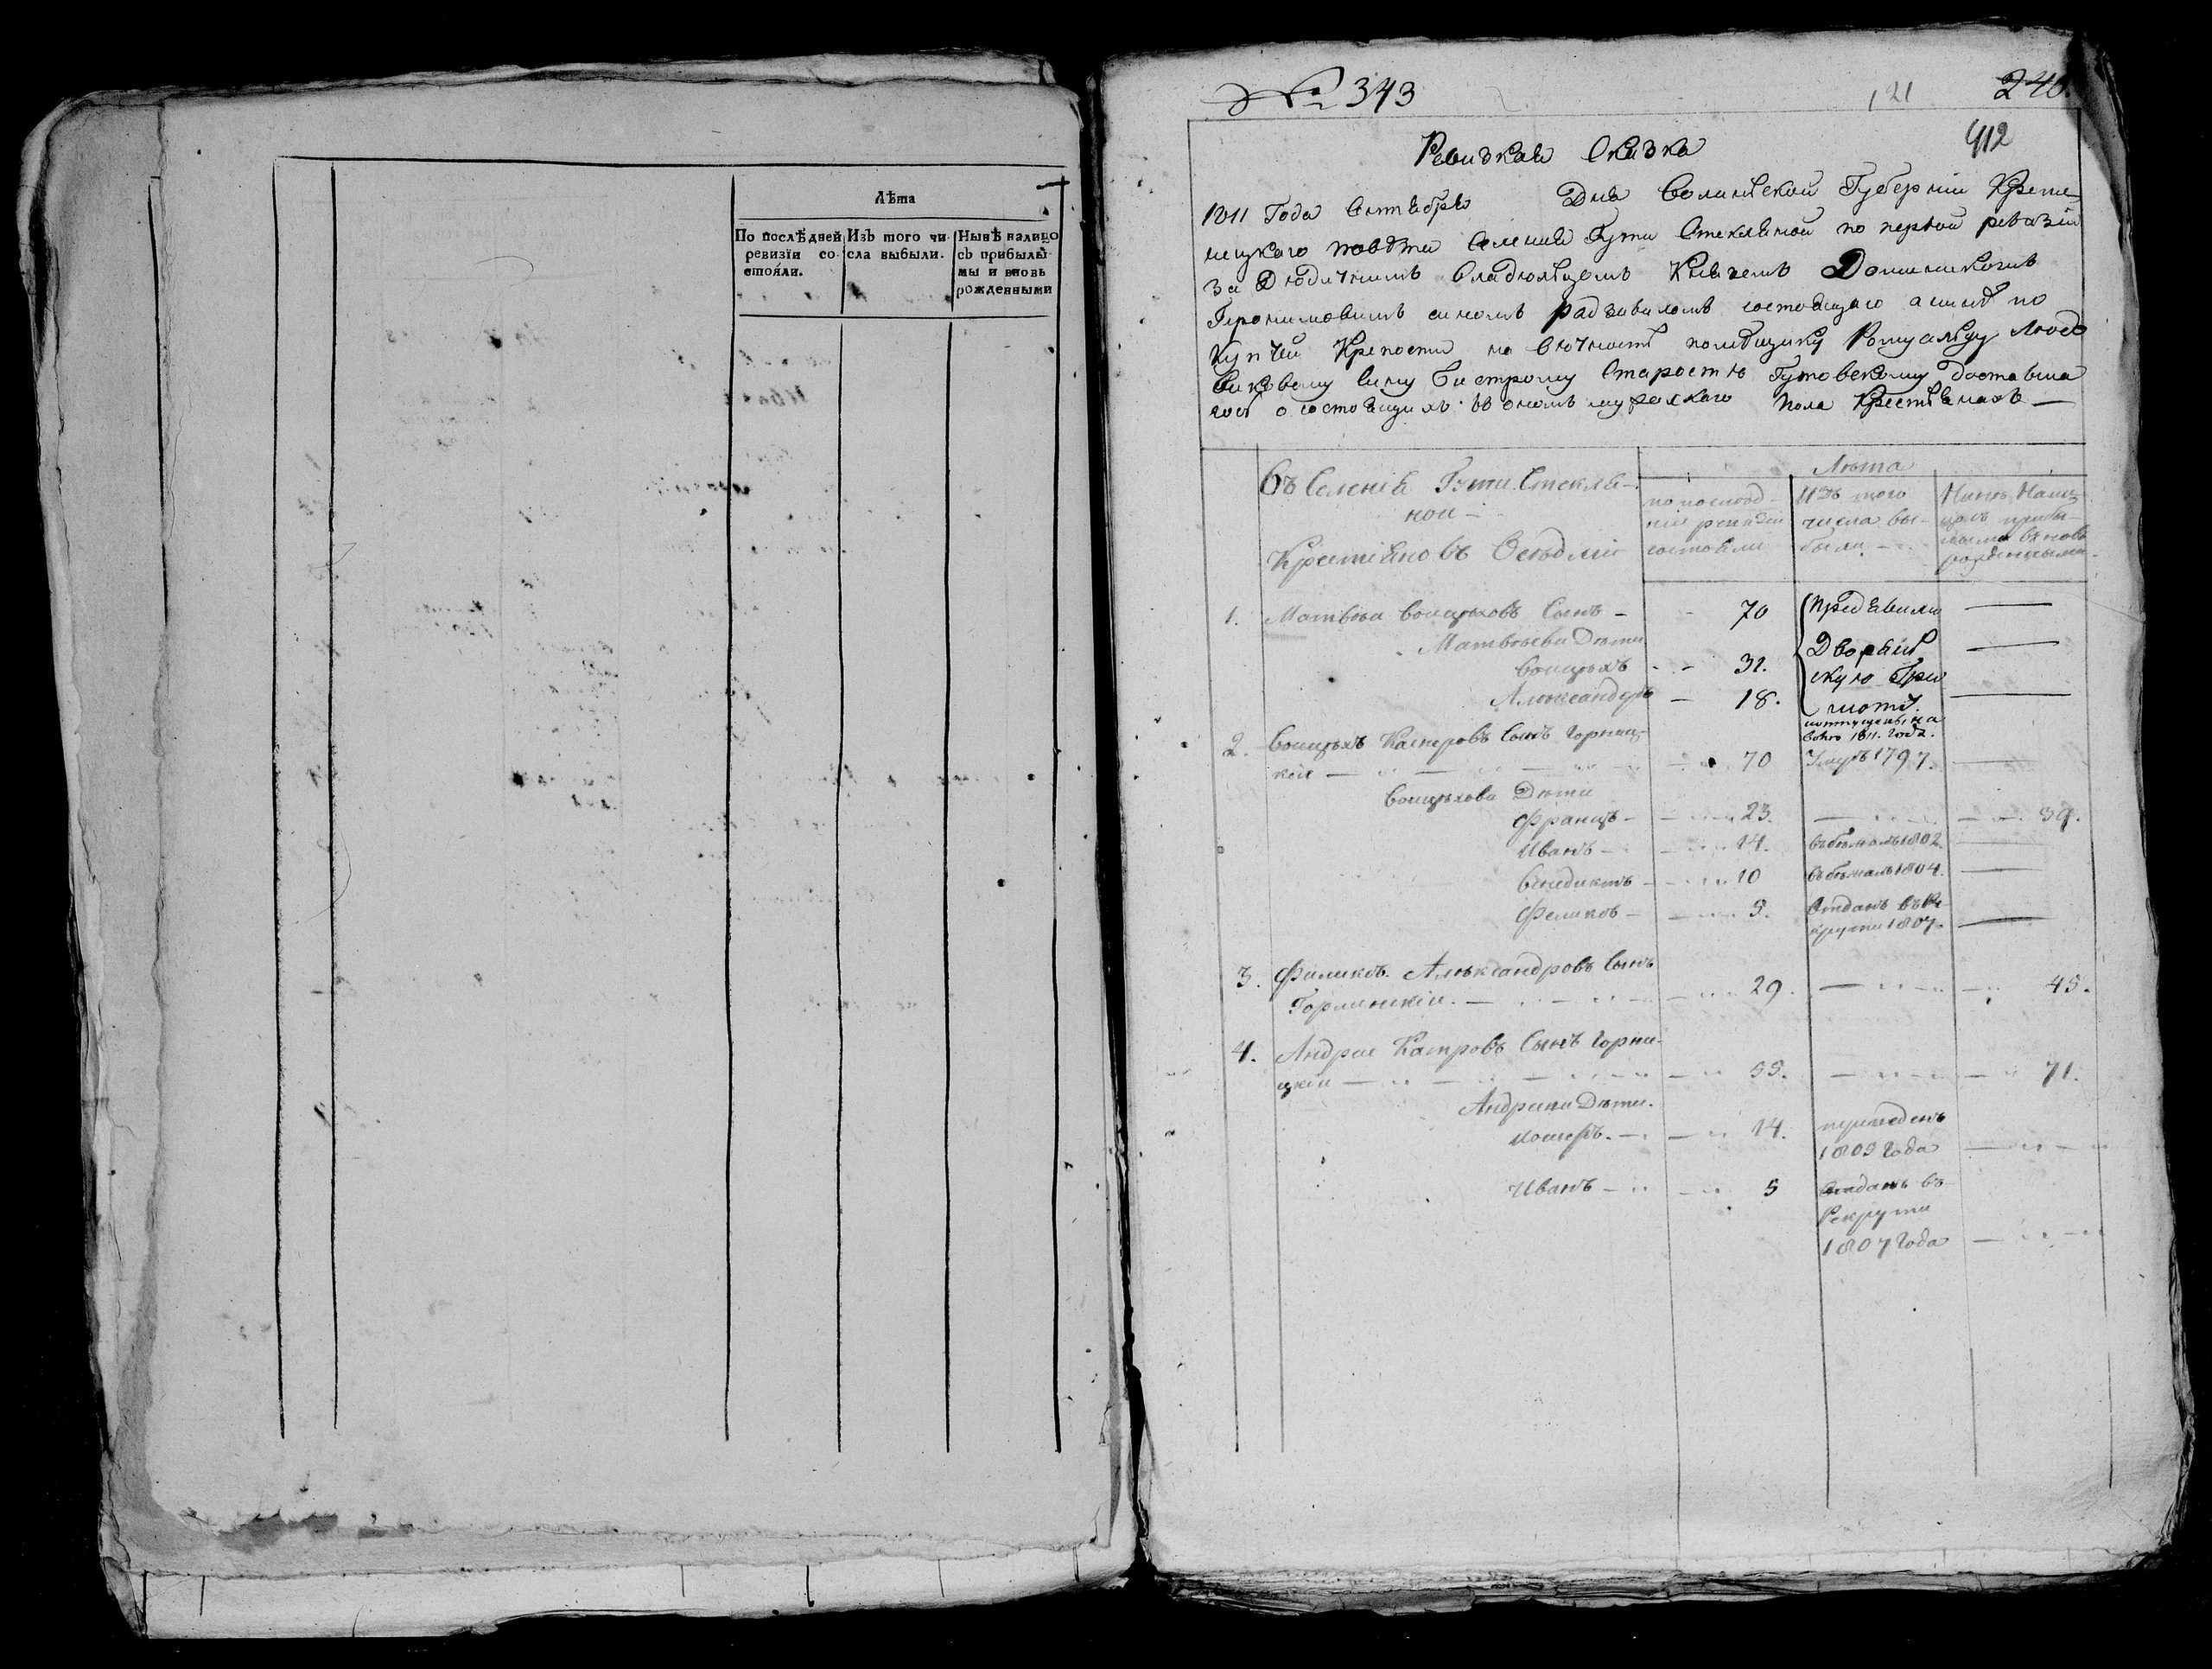 Лѣта
По послѣдней ревизїи состояли.
Изъ того числа выбыли.
Нынѣ налицо съ прибылыми и вновь рожденными
№ 343
121
240.
412
Ревизкая Сказка
1811 Года Октября Дня Волинской Губерніи Креме-
нецкого повѣта Селенія Гути Стекляной по первой ревизіи
за Дюдичнимъ Владюлцемъ Княземъ Доминикомъ
Геронимовимъ синомъ Радзивиломъ состоящаго а нинѣ по
Купчей Крепости на вючность помѣщику Ромуальду Людв
виковому Сину Бистрому Старостю Гутовскому доставша
гося о состоящихъ въ ономъ мужескаго пола Крестьянахъ —
Въ Селеніи Гути Стекля-
ной —
Крестіяновъ Осѣдлій
Люта
по послюд-
ней ревизіи
состояли
Изъ того
числа вы-
были —
Нинѣ Нали-
цо съ прибы-
лыми вновь
рожденными
1. Матвѣй Войцѣховъ Сынъ — 70 предъявили
Матвѣеви Дѣти
Войцѣхъ — 31. Дворянскую
Александръ — 18.
2. Войцѣхъ Касперовъ Сынъ Горниц-
кій — 70 Умеръ 1797.
Войцѣхови Дѣти
Францъ — 23. — 39.
Иванъ — 14. въ бѣгахъ 1802.
Бенедиктъ — 10 въ бѣгахъ 1804.
Феликсъ — 9. Отданъ въ Ре
круты 1807.
3. Филиксъ Александровъ Сынъ
Горлинскій — 29. — 45.
4. Андрей Каспровъ Сынъ Горни-
цкій — 55. — 71.
Андреєви Дѣти.
Иосифъ. — 14. переведенъ
1809 Года
Иванъ — 5 Отданъ въ
Рекруты
1807 Года